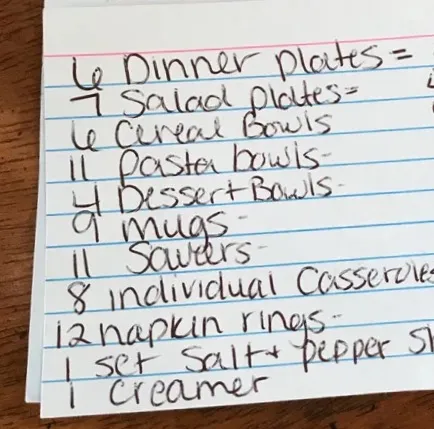 6 Dinner plates =
7 Salad plates=
6 Cereal Bowls
11 pasta bowls-
4 Dessert Bowls-
9 mugs-
11 Saucers-
8 individual Casseroles
12 napkin rings-
1 set salt + pepper sh
1 creamer